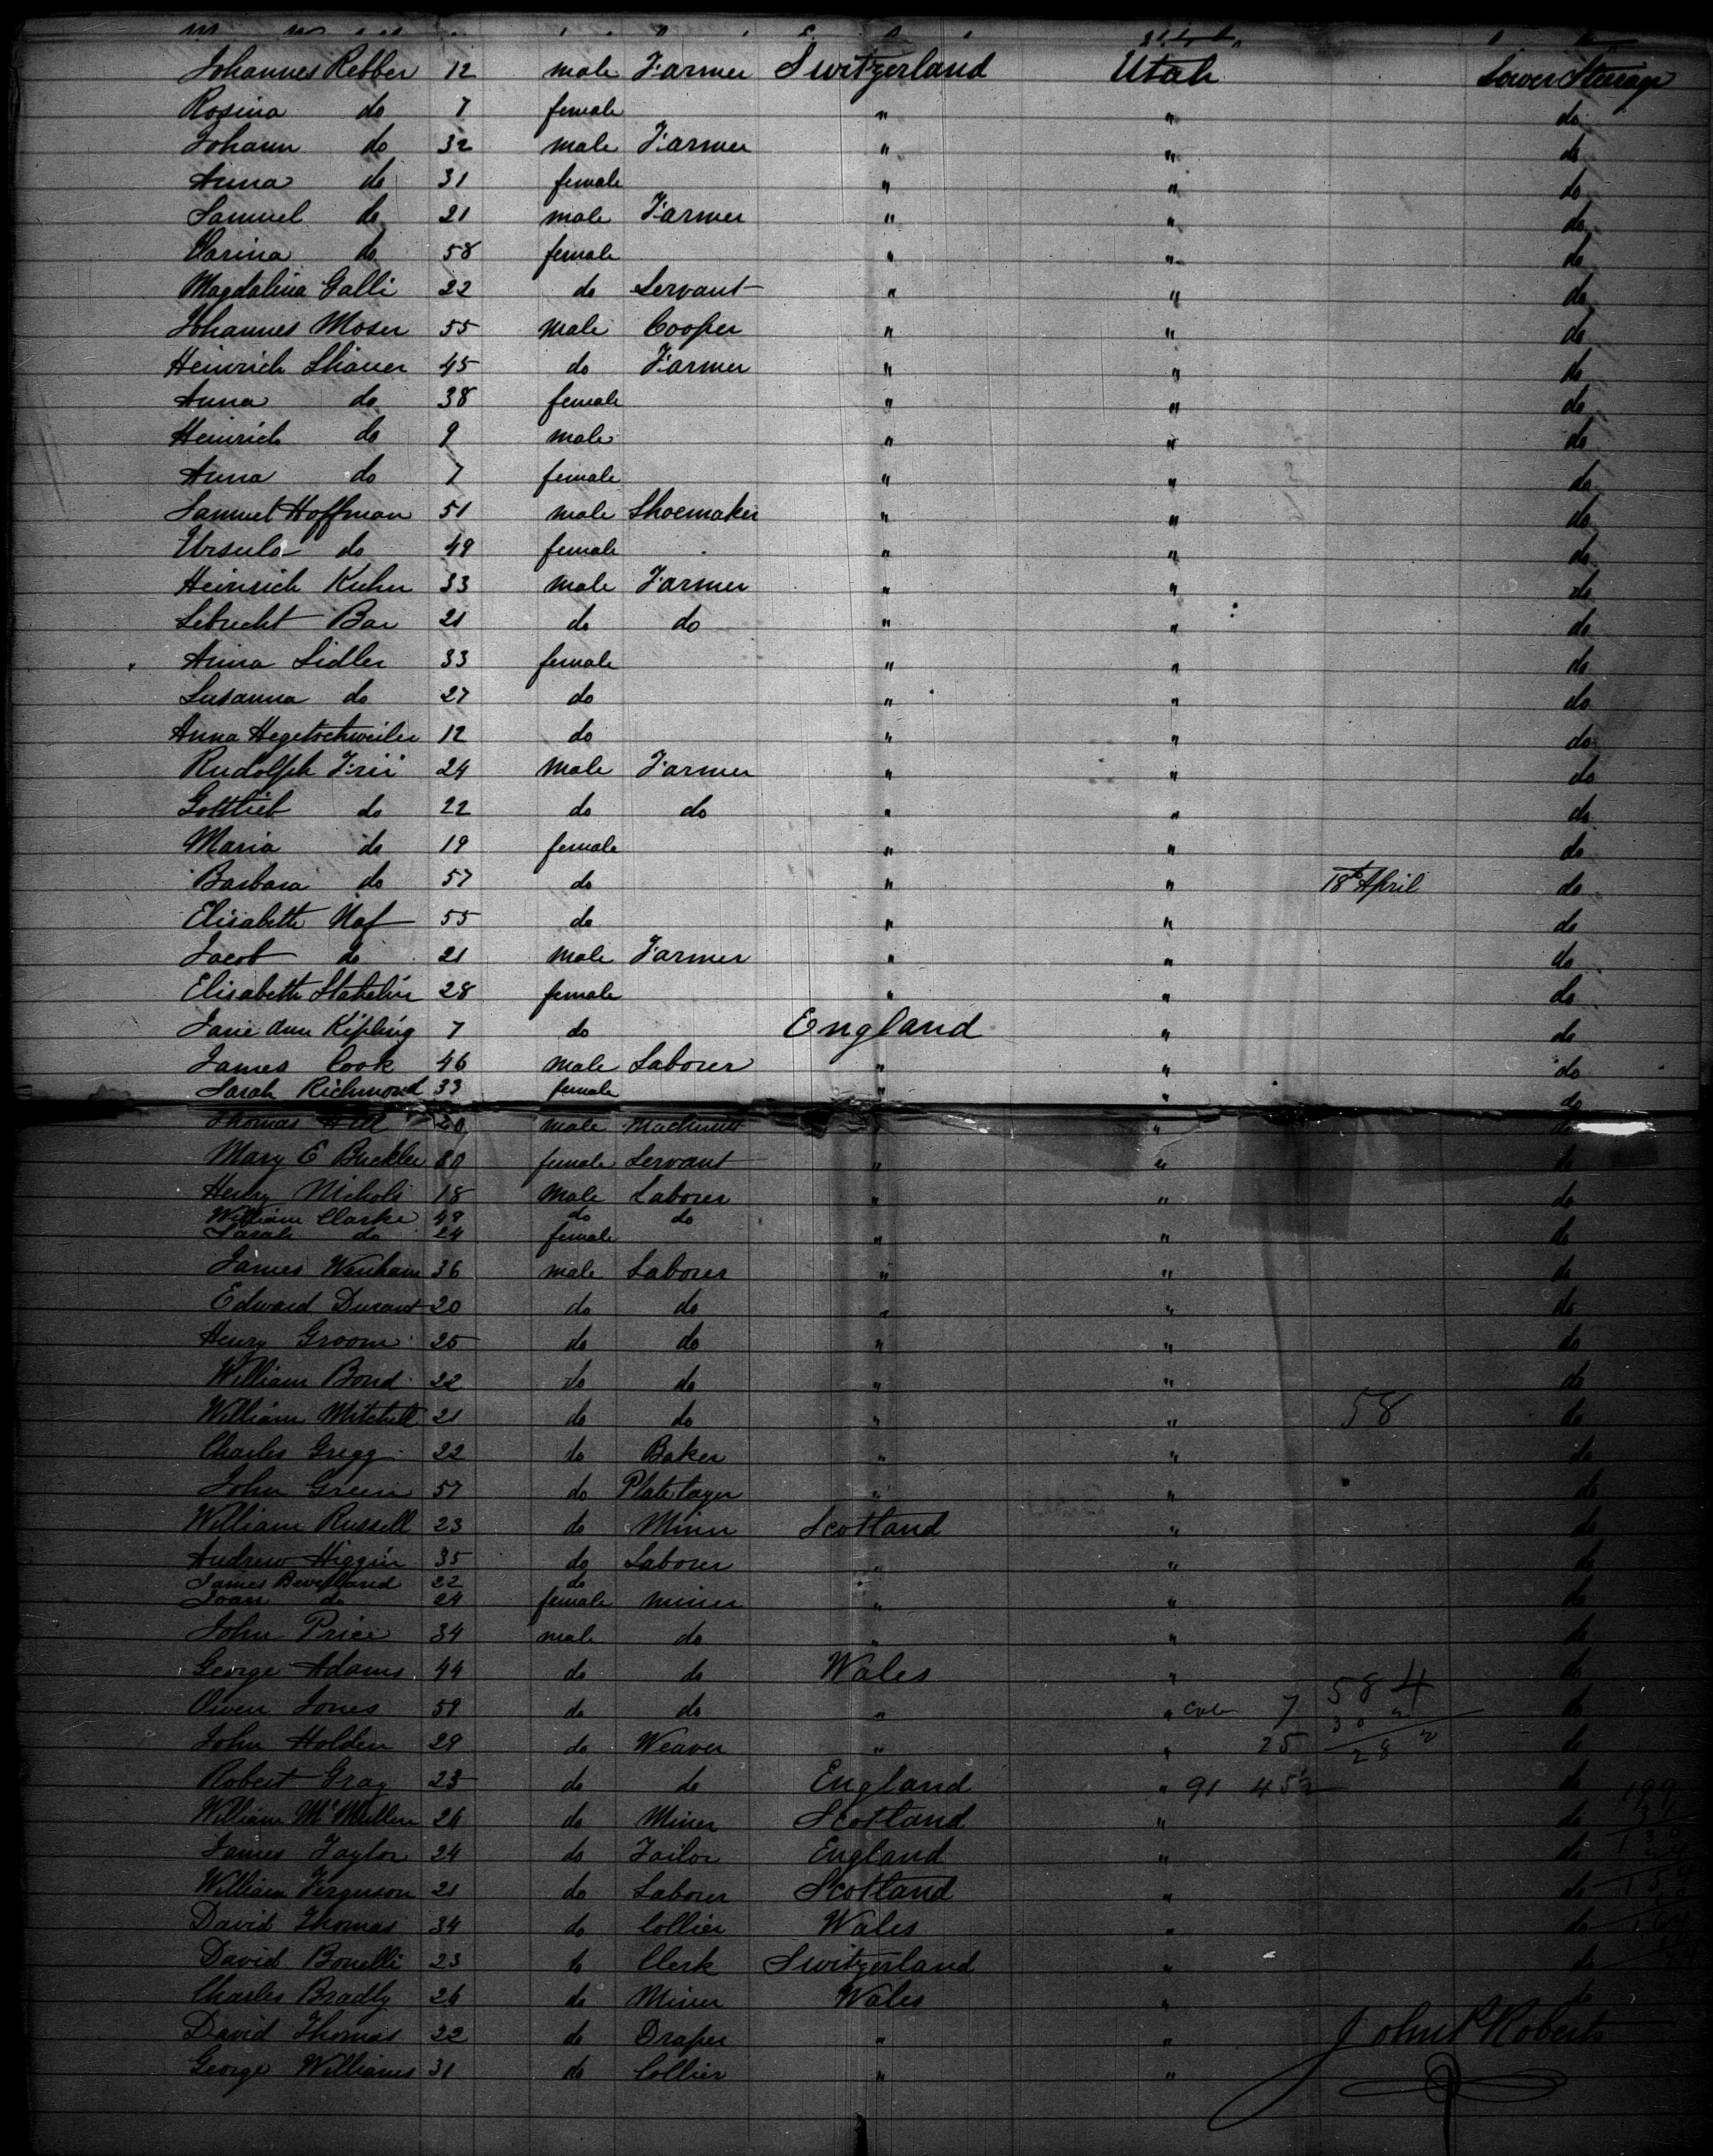 Johannes Rebber 12 male Farmer Switzerland Utah Lower Steerage
Rosina do 7 female " " do
Johann do 32 male Farmer " " do
Anna do 31 female " " do
Samuel do 21 male Farmer " " do
Varina do 58 female " " do
Magdalina Galli 22 do Servant " " do
Johannes Moser 55 male Cooper " " do
Heinrich Shäuer 45 do Farmer " " do
Anna do 38 female " " do
Heinrich do 9 male " " do
Anna do 7 female " " do
Samuel Hoffman 51 male Shoemaker " " do
Ursula do 49 female " " do
Heinrich Kuhn 33 male Farmer " " do
Lebrecht Bar 21 do do " " do
Anna Sidler 33 female " " do
Susanna do 27 do " " do
Anna Hegetschweiler 12 do " " do
Rudolph Frii 24 male Farmer " " do
Gottlieb do 22 do do " " do
Maria do 19 female " " do
Barbara do 57 do " " 18th April do
Elisabeth Naf 55 do " " do
Jacob do 21 male Farmer " " do
Elisabeth Stahelin 28 female " " do
Jane Ann Kipling 7 do England " do
James Cook 46 male Laborer " " do
Sarah Richmond 33 female " " do
Thomas Hill 20 male Machinist " do
Mary E Buckler 30 female Servant " " do
Henry Nichols 18 male Laborer " " do
William Clarke 49 do do
Sarah do 24 female " " do
James Wenham 36 male Laborer " " do
Edward Durant 20 do do " " do
Henry Groom 25 do do " " do
William Bond 22 do do " " do
William Mitchell 21 do do " " 58 do
Charles Gregg 22 do Baker " " do
John Green 57 do Platelayer " " do
William Russell 23 do Miner Scotland " do
Andrew Higgin 35 do Laborer " " do
James Beveland 22 do
Joan do 24 female miner " " do
John Price 34 male do " " do
George Adams 44 do do Wales " do
Owen Jones 59 do do " " 7 584 do
John Holden 29 do Weaver " " 25 28 do
Robert Gray 23 do do England " 91 45 do
William McMullen 26 do Miner Scotland " do
James Taylor 24 do Tailor England " do
William Ferguson 21 do Laborer Scotland " do
David Thomas 34 do Collier Wales " do
David Bonelli 23 do Clerk Switzerland " do
Charles Bradly 26 do Miner Wales " do
David Thomas 22 do Draper " " John P Roberts
George Williams 31 do Collier " "